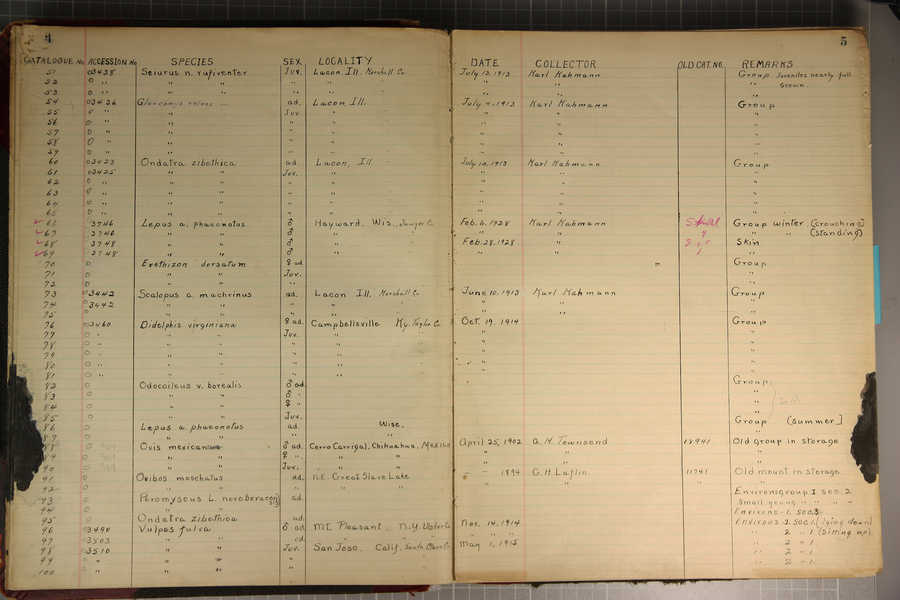 4
CATALOGUE No ACCESSION No SPECIES SEX LOCALITY
51 03428 Sciurus n. rufiventer Juv. Lacon Ill. Marshall Co
52 0 " " " " "
53 0 " " " " "
54 03426 Glaucomys volans ad. Lacon Ill.
55 0 " " Juv "
56 0 " " " "
57 0 " " " "
58 0 " " " "
59 0 " " " "
60 03423 Ondatra zibethica ad Lacon, Ill.
61 03425 " " Juv. "
62 0 " " " " "
63 0 " " " " "
64 0 " " " " "
65 0 " " " " "
66 3746 Lepus a. phaeonotus ♂ Hayward. Wis.
67 3746 " " ♂ "
68 3748 " " ♂ "
69 3748 " " ♂ "
70 0 Erethizon dorsatum ♀ ad
71 0 " " Juv.
72 0 " " "
73 03442 Scalopus a. machrinus ad. Lacon Ill. Marshall Co
74 03442 " " " "
75 0 " " " "
76 03460 Didelphis virginiana ♀ ad. Campbellsville Ky. Taylor Co.
77 0 " " " Juv. "
78 0 " " " "
79 0 " " " "
80 0 " " " " "
81 0 " " " " "
82 0 Odocoileus v. borealis ♂ ad.
83 0 " " ♂ "
84 0 " " ♀ "
85 0 " " Juv.
86 0 Lepus a. phaeonotus ad. Wisc.
87 0 " " "
88 0 Ovis mexicanus ♂ ad. Cerro Carrigal, Chihuahua, Mexico
89 0 " " ♀ " " "
90 0 " " Juv. " "
91 0 Ovibos moschatus ad. N.E. Great Slave Lake
92 0 " " " " "
93 0 Peromyscus L. noveboracensis ad
94 0 " "
95 0 Ondatra zibethica ad.
96 03490 Vulpes fulva ♂ ad. Mt. Pleasant, N.Y.
97 03503 " " ad
98 03510 " " Juv. San Jose, Calif.
99 " " "
100 " " "
5
DATE COLLECTOR OLD CAT. NO. REMARKS
July 12, 1913 Karl Kahmann Group Juveniles nearly full
" " " grown.
" "
July 4, 1913 Karl Kahmann Group
" " "
" " "
" " "
" " "
" " "
July 10, 1913 Karl Kahmann Group
" " "
" " "
" " "
" " "
" " "
Feb. 6, 1928 Karl Kahmann Group winter (crouching)
" " " " (standing)
Feb. 28, 1928 " Skin
" " "
Group
"
"
June 10, 1913 Karl Kahmann Group
" " "
" " "
Oct. 19, 1914 Group
" "
" "
" "
" "
" "
Group
"
"
"
Group (Summer)
"
April 25, 1902 C. H. Townsend 18941 Old group in storage
" " "
" " "
1894 G. H. Laflin 11741 Old mount in storage
" " "
Environs group 1 Sec. 2
Small group " "
Environs 1. Sec. 3
Nov. 14, 1914 Environs 2. Sec. 1 (lying down)
" " " " 2 " 1 (sitting up)
May 1, 1915 " 2 " 1
" 2 " 1
" 2 " 1